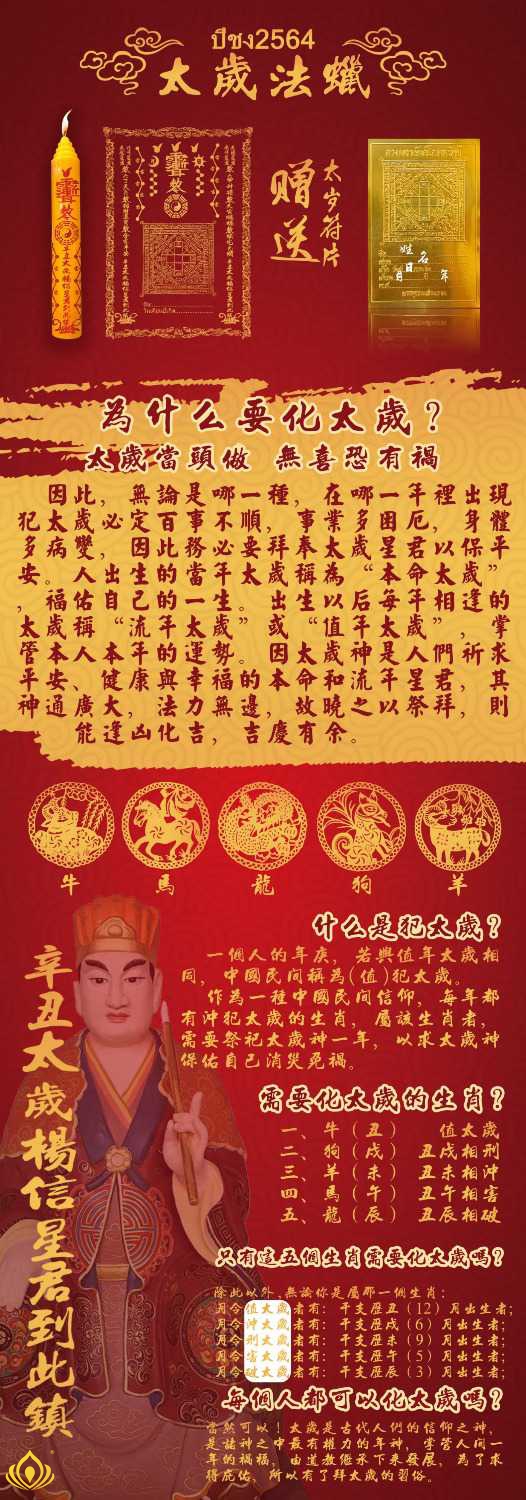 ปีชง2564
太歲法蠟
太岁符片
赠送
姓名
日
月 年
為什么要化太歲？
太歲當頭做 無喜恐有禍
因此，無論是哪一種，在哪一年裡出現
犯太歲必定百事不順，事業多困厄，身體
多病變，因此務必要拜奉太歲星君以保平
安。人出生的當年太歲稱為“本命太歲”
，福佑自己的一生。出生以后每年相逢的
太歲稱“流年太歲”或“值年太歲”，掌
管本人本年的運勢。因太歲神是人們祈求
平安、健康與幸福的本命和流年星君，其
神通廣大，法力無邊，故曉之以祭拜，則
能逢凶化吉，吉慶有余。
牛 馬 龍 狗 羊
辛丑太歲楊信星君到此鎮
什么是犯太歲？
一個人的年庚，若與值年太歲相
同，中國民间稱為(值)犯太歲。
作為一種中國民间信仰，每年都
有沖犯太歲的生肖，屬該生肖者，
需要祭祀太歲神一年，以求太歲神
保佑自己消災免禍。
需要化太歲的生肖？
一、牛（丑） 值太歲
二、狗（戌） 丑戌相刑
三、羊（未） 丑未相沖
四、馬（午） 丑午相害
五、龍（辰） 丑辰相破
只有這五個生肖需要化太歲嗎？
除此以外,無論你是屬那一個生肖：
月令值太歲者有：干支歷丑（12）月出生者；
月令沖太歲者有：干支歷戌（6）月出生者；
月令刑太歲者有：干支歷未（9）月出生者；
月令害太歲者有：干支歷午（5）月出生者；
月令破太歲者有：干支歷辰（3）月出生者；
每個人都可以化太歲嗎？
當然可以！太歲是古代人們的信仰之神，
是諸神之中最有權力的年神，掌管人间一
年的禍福，由道教继承下来發展，為了求
得庇佑，所以有了拜太歲的習俗。